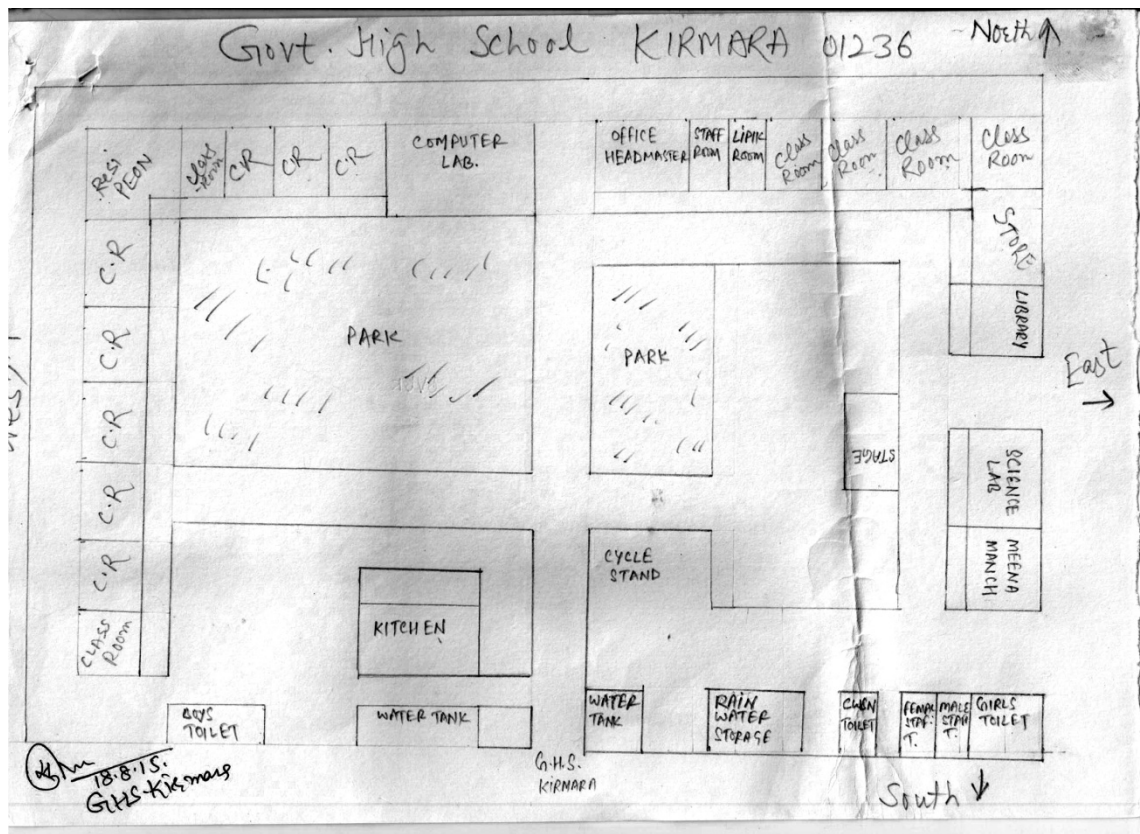 Govt. High School KIRMARA 01236
North
Resi. PEON
Class Room
C.R
C.R
C.R
COMPUTER
LAB.
OFFICE
HEADMASTER
STAFF
ROOM
LIPIK
ROOM
Class
Room
Class
Room
Class
Room
Class
Room
STORE
LIBRARY
East
C.R
C.R
C.R
C.R
C.R
CLASS
ROOM
PARK
PARK
STAGE
SCIENCE
LAB
MEENA
MANCH
CYCLE
STAND
KITCHEN
BOYS
TOILET
WATER TANK
WATER
TANK
RAIN
WATER
STORAGE
CWSN
TOILET
FEMALE
STAF.
T.
MALE
STAFF
T.
GIRLS
TOILET
G.H.S.
KIRMARA
South
18.8.15.
GHS Kirmara